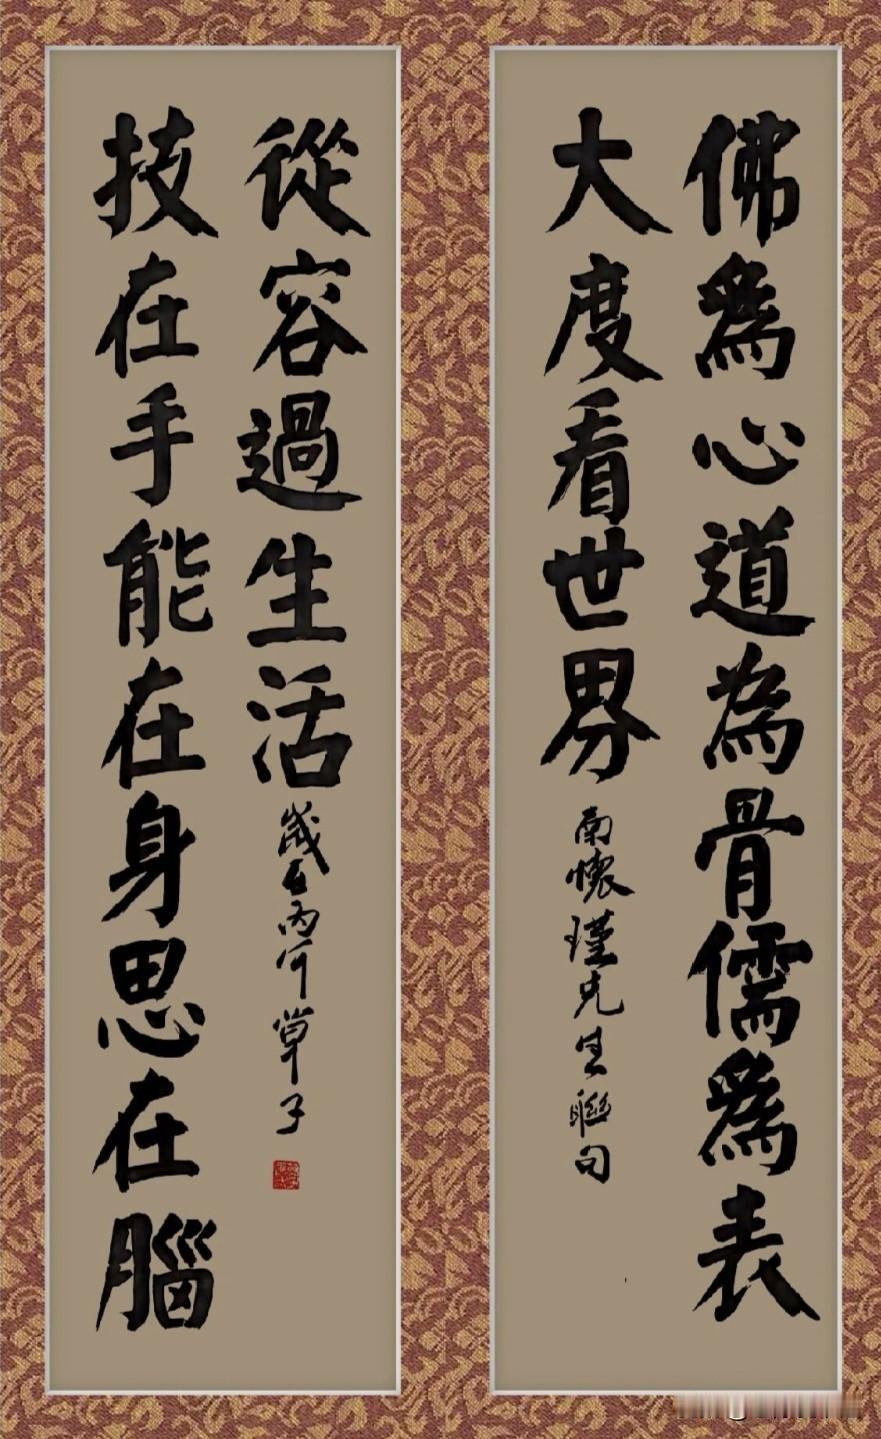 佛爲心道為骨儒爲表
大度看世界
南懷瑾先生聯句
技在手能在身思在腦
從容過生活
歲在丙午